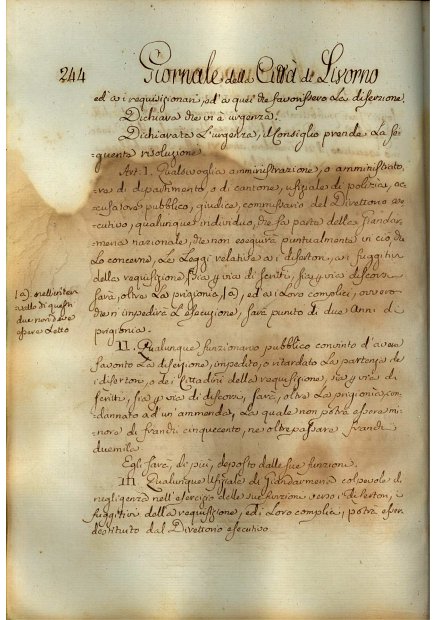 244 Giornale della Città di Livorno
ed' a i requisizionari, ed' a quei che favorissero La diserzione
Dichiara che vi è urgenza.
Dichiarata L'urgenza, il Consiglio prende La se=
=guente risoluzione
Art. I. Qualsivoglia amministrazione, o amministrato=
=re di dipartimento, o di cantone, uffiziale di polizia, ac=
=cusatore pubblico, giudice, commissario del Direttorio ese=
=cutivo, qualunque individuo, che fa parte della Giandar=
=meria nazionale, che non eseguirà puntualmente in ciò, che
Lo concerne, Le Leggi relative a i disertori, a i fuggitivi
della requisizione, sia per via di scritti, sia per via di discorsi
sarà, oltre La prigionia, (a), ed a i Loro complici, ovvero
che ne impedirà L'esecuzione, sarà punito di due Anni di
prigionia.
(a) nell'inter=
vallo di questi
due non deve
essere Letto
II. Qualunque funzionario pubblico convinto d'aver
favorito La diserzione, impedita, o ritardato La partenza de
i disertori, o de i Cittadini della requisizione, sia per via di
scritti, sia per via di discorsi, sarà, oltre La prigionia, con=
=dannato ad' un'ammenda, La quale non potrà essere mi=
=nore di franchi cinquecento, ne oltrepassare franchi
duemila
Egli sarà, di più, deposto dalle sue funzione.
III. Qualunque Uffiziale di Giandarmeria colpevole di
negligenza nell'esercizio delle sue funzione verso i disertori, i
fuggitivi della requisizione, ed i Loro complici, potrà esser
destituito dal Direttorio esecutivo